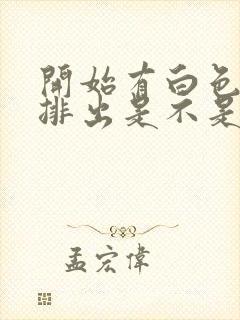 開始有白色
排出是不是
孟宏偉